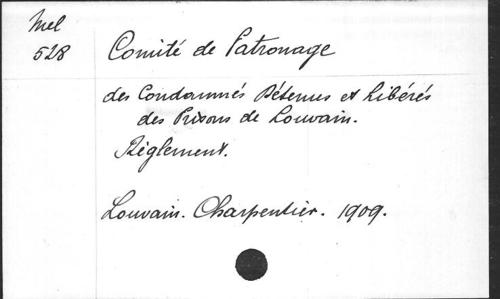 Mel
528
Comité de Patronage
des Condamnés Détenus et Libérés
des Prisons de Louvain.
Règlement.
Louvain. Charpentier. 1909.